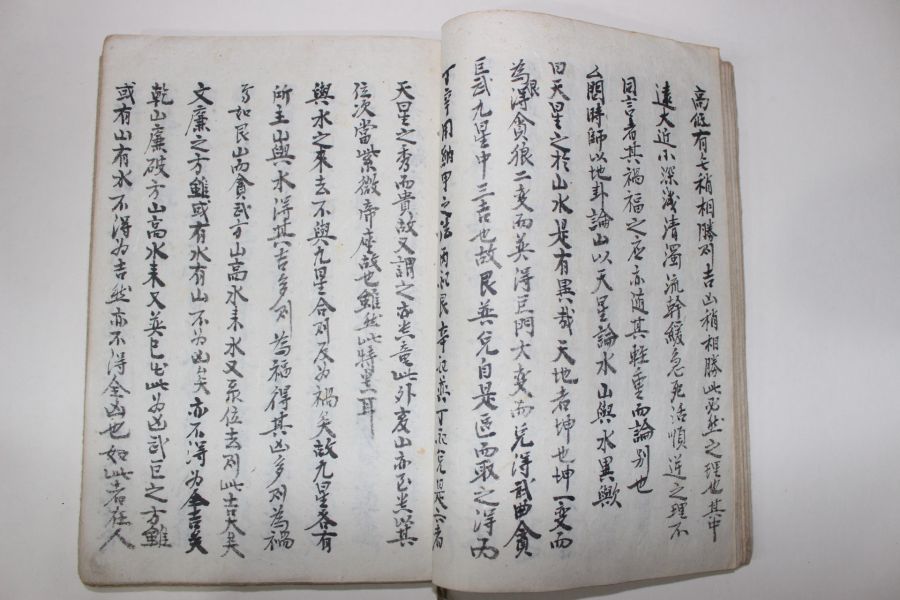 高低有七稍相勝則吉凶稍相勝此必然之理也其中
遠大近小深浅清濁流幹緩急死活順逆之理不
同言者其禍福之应亦随其軽重而論別也
厶問時師以地卦論山以天星論水山與水異歟
曰天星之於山水是有異哉天地者坤也坤一変而
為艮得貪狼二変而巽得巨門大変而兌得武曲貪
巨武九星中三吉也故艮巽兌自是區而取之浔丙
丁辛用納甲之法丙納艮辛納巽丁納兌
天星之秀而貴故又謂之亦吉竜此外亥山亦至吉以其
位次當紫微帝座故也雖然此特
與水之来去不與九星合則反为禍矣故九星各有
所主山與水得其吉多則為福得其凶多則為禍
如艮山而貪武方山高水来水又
位去則此吉大矣
文廉之方雖或有水有山不为凶矣亦不得为全吉矣
乾山廉破方山高水来又巽巳
此为凶武巨之方雖
或有山有水不得为吉然亦不得全凶也如此者在人